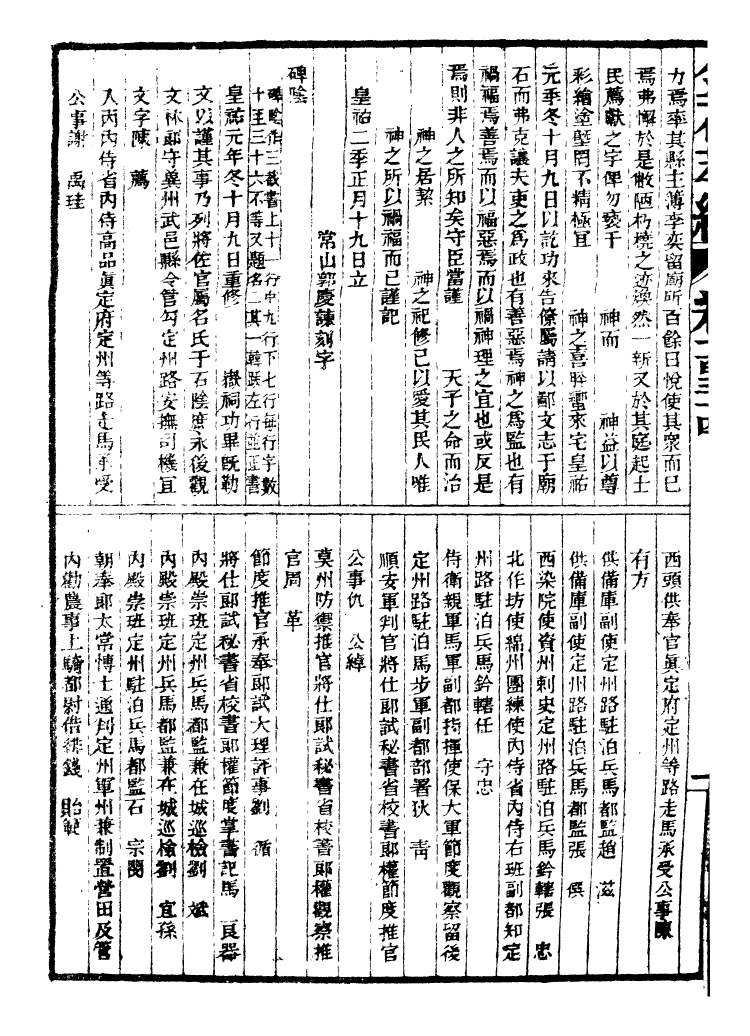 力焉率其縣主簿李奕留廟所百餘日悅使其衆而巳
焉弗懈於是敝陋朽橈之迹煥然一新又於其庭起士
民薦獻之字俾勿褻干　神而　神益以尊
彩繪塗墍罔不精極宜　神之喜肸蠁來宅皇祐
元季冬十月九日以訖功來告僚屬請以鄙文志于廟
石而弗克讓夫吏之爲政也有善惡焉神之爲監也有
禍福焉善焉而以福惡焉而以禍神理之宜也或反是
焉則非人之所知矣守臣當謹　天子之命而治
神之居絜　神之祀修己以愛其民人唯
神之所以禍福而已謹記
皇祐二季正月十九日立
常山郭慶諫刻字
碑陰
碑陰作三截書上十一行中九行下七行每行字數
十至三十六不等又題名二其一韓跋左行並正書
皇祐元年冬十月九日重修　嶽祠功畢旣勒
文以謹其事乃列將佐官屬名氏于石陰庶永後觀
文林郎守冀州武邑縣令管勾定州路安撫司機宜
文字陳　薦
入內內侍省內侍高品眞定府定州等路走馬承受
公事謝　禹珪
西頭供奉官眞定府定州等路走馬承受公事陳
有方
供備庫副使定州路駐泊兵馬都監趙　滋
供備庫副使定州路駐泊兵馬都監張　僎
西染院使資州剌史定州路駐泊兵馬鈐轄張　忠
北作坊使綿州團練使內侍省內侍右班副都知定
州路駐泊兵馬鈐轄任　守忠
侍衛親軍馬軍副都指揮使保大軍節度觀察留後
定州路駐泊馬步軍副都部署狄　靑
順安軍判官將仕郎試秘書省校書郎權節度推官
公事仇　公綽
莫州防禦推官將仕郎試秘書省校書郎權觀察推
官周　革
節度推官承奉郎試大理評事劉　循
將仕郎試秘書省校書郎權節度掌書記馬　艮器
內殿崇班定州兵馬都監兼在城巡檢劉　斌
內殿崇班定州兵馬都監兼在城巡檢劉　宜孫
內殿崇班定州駐泊兵馬都監石　宗閔
朝奉郎太常博士通判定州軍州兼制置營田及管
內勸農事上騎都尉借緋錢　貽範